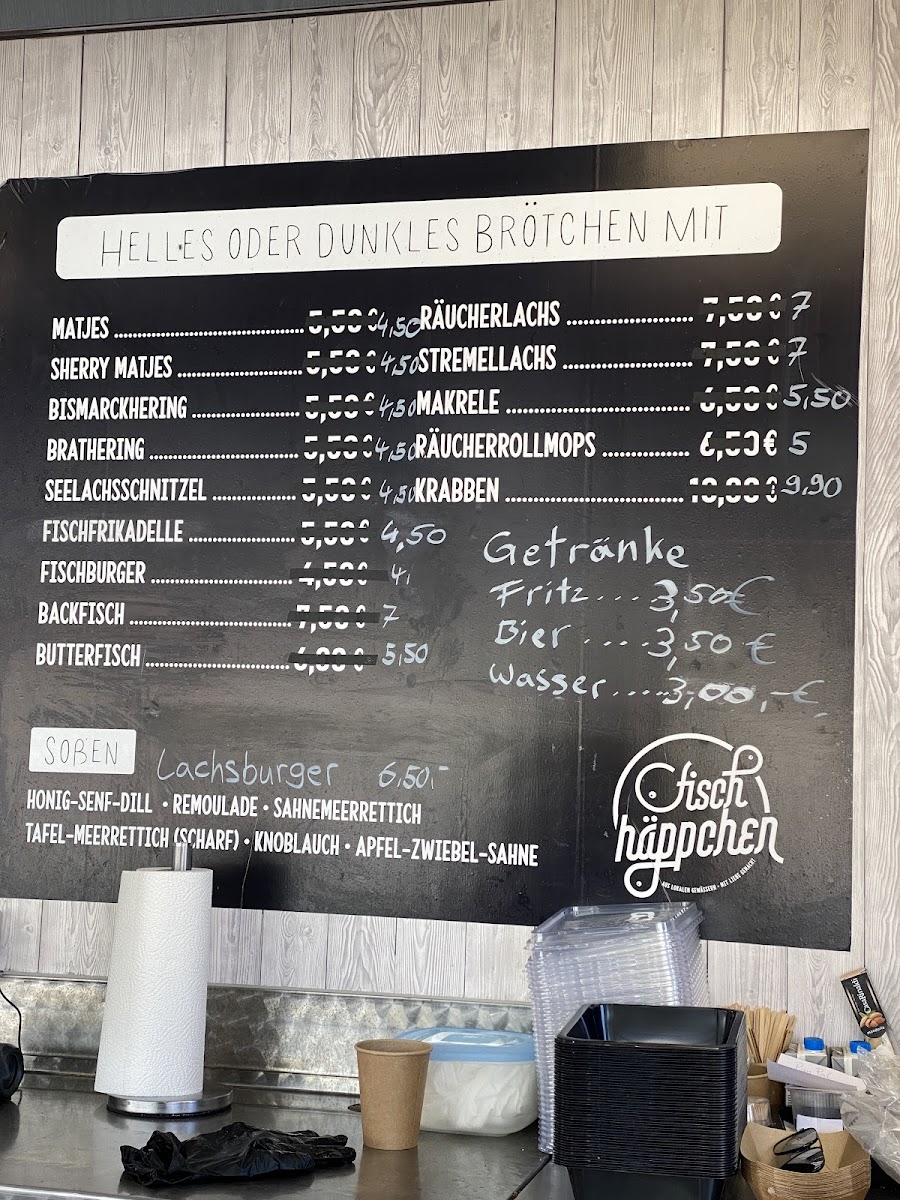 HELLES ODER DUNKLES BRÖTCHEN MIT
MATJES 5,50 € 4,50
SHERRY MATJES 5,50 € 4,50
BISMARCKHERING 5,50 € 4,50
BRATHERING 5,50 € 4,50
SEELACHSSCHNITZEL 5,50 € 4,50
FISCHFRIKADELLE 5,50 € 4,50
FISCHBURGER 4,50 € 4,
BACKFISCH 7,50 € 7
BUTTERFISCH 5,50
RÄUCHERLACHS 7,50 € 7
STREMELLACHS 7,50 € 7
MAKRELE 6,50 € 5,50
RÄUCHERROLLMOPS 6,50€ 5
KRABBEN 9,90
Getränke
Fritz.... 3,50€
Bier .... 3,50 €
Wasser..... 3,00,-€
SOßEN
Lachsburger 6,50,-
HONIG-SENF-DILL • REMOULADE • SAHNEMEERRETTICH
TAFEL-MEERRETTICH (SCHARF) • KNOBLAUCH • APFEL-ZWIEBEL-SAHNE
fisch
häppchen
AUS LOKALEN GEWÄSSERN • MIT LIEBE GEMACHT